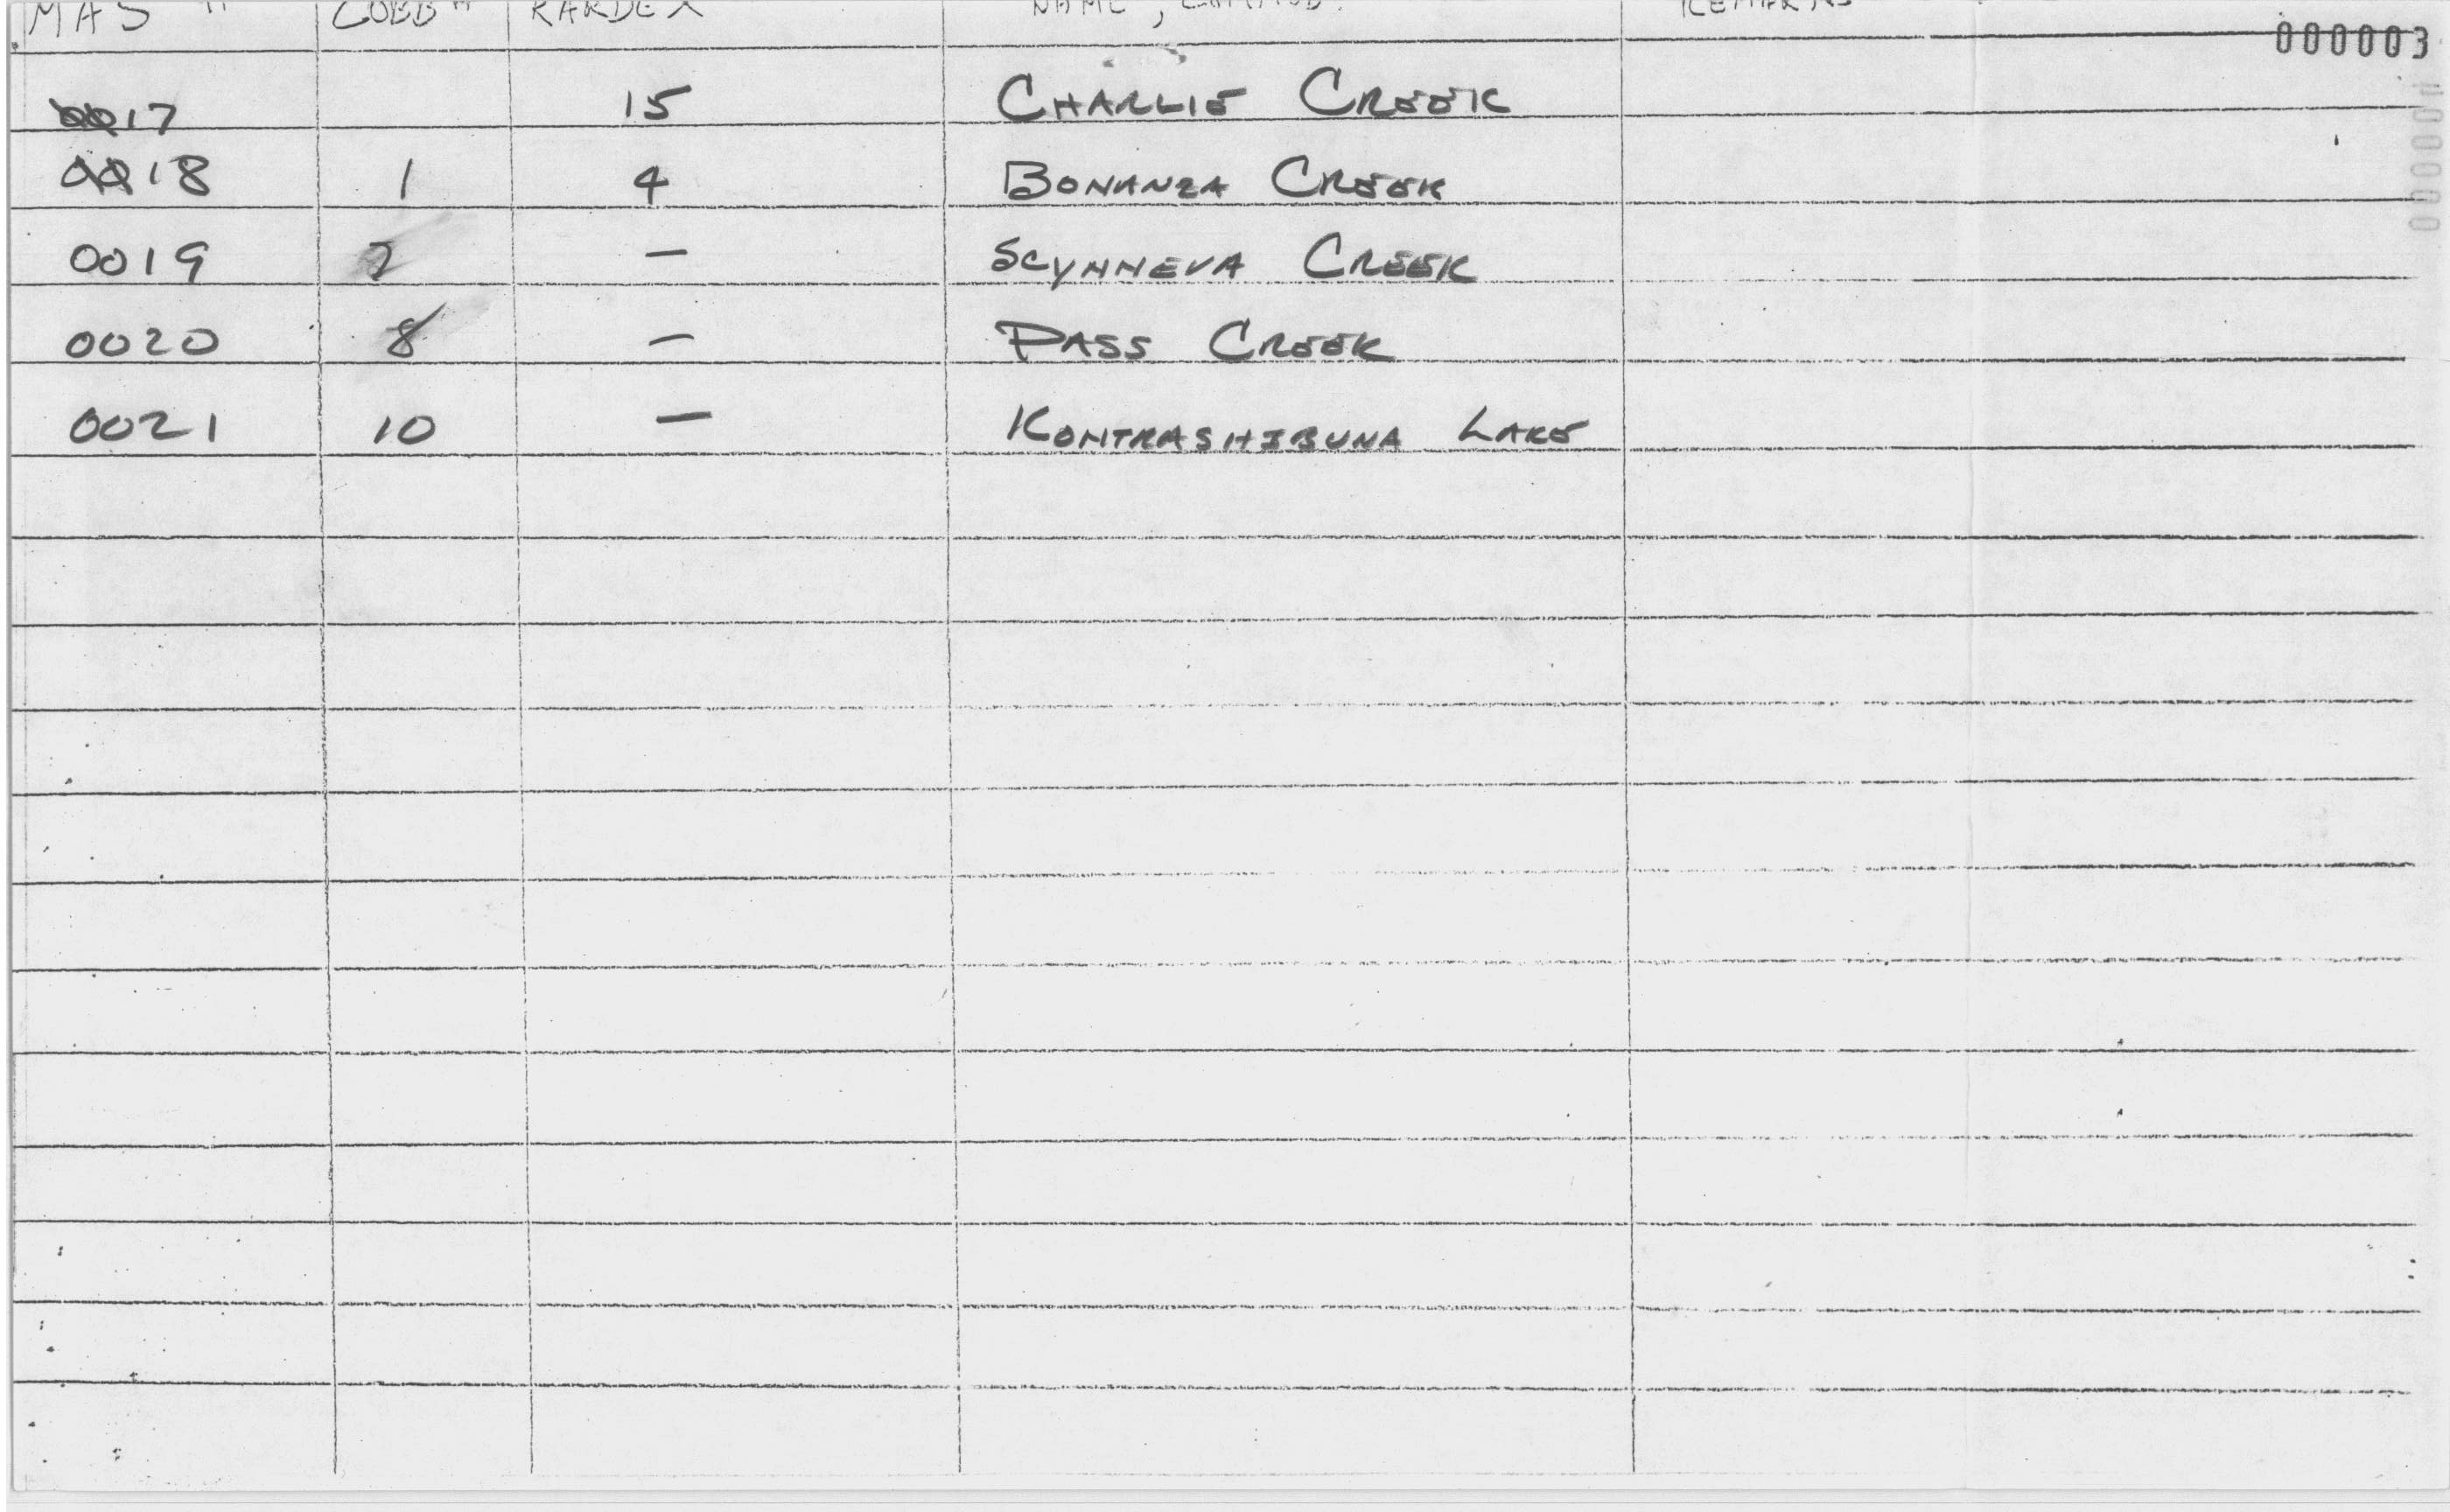 MAS # COBB # KARDEX NAME, COMMOD. REMARKS
000003
0017 15 CHARLIE CREEK
0018 1 4 BONANZA CREEK
0019 2 — SCYNNEVA CREEK
0020 8 — PASS CREEK
0021 10 — KONTRASHIBUNA LAKE